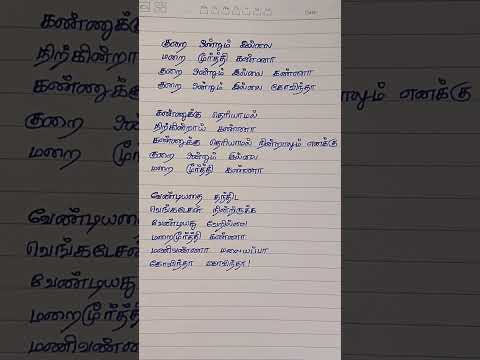 குறை ஒன்றும் இல்லை
மறை மூர்த்தி கண்ணா
குறை ஒன்றும் இல்லை கண்ணா
குறை ஒன்றும் இல்லை கோவிந்தா
கண்ணுக்கு தெரியாமல்
நிற்கின்றாய் கண்ணா
கண்ணுக்கு தெரியாமல் நின்றாலும் எனக்கு
குறை ஒன்றும் இல்லை
மறை மூர்த்தி கண்ணா
வேண்டியதை தந்திட
வெங்கடேசன் நின்றிருக்க
வேண்டியது வேறில்லை
மறைமூர்த்தி கண்ணா
மணிவண்ணா மலையப்பா
கோவிந்தா கோவிந்தா!